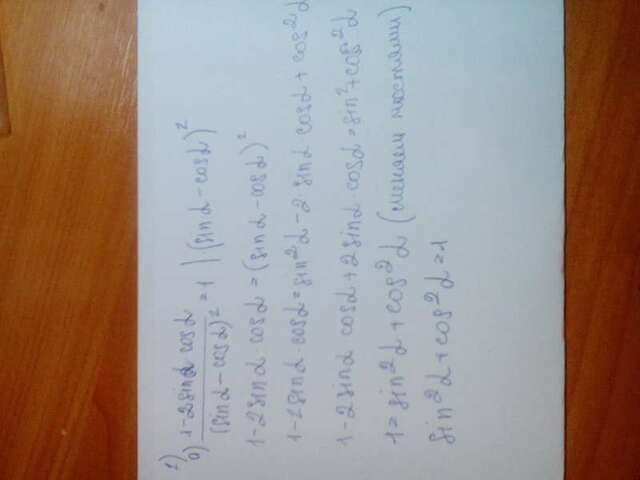 1)
а) 1-2sinα cosα / (sinα-cosα)² = 1 | · (sinα-cosα)²
1-2sinα·cosα = (sinα-cosα)²
1-2sinα·cosα = sin²α-2·sinα cosα + cos²α
1-2sinα cosα+2sinα·cosα = sin²+cos²α
1 = sin²α+cos²α (меняем местами)
sin²α+cos²α=1